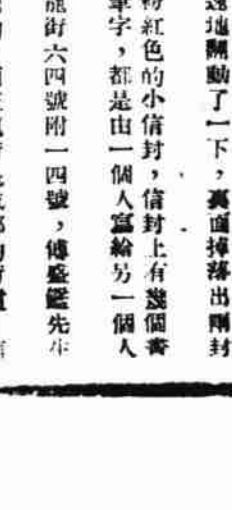 地翻動了一下，裏面掉落出兩封
粉紅色的小信封，信封上有幾個書
筆字，都是由一個人寫給另一個人
龍街六四號附一四號，傅盛鑑先生